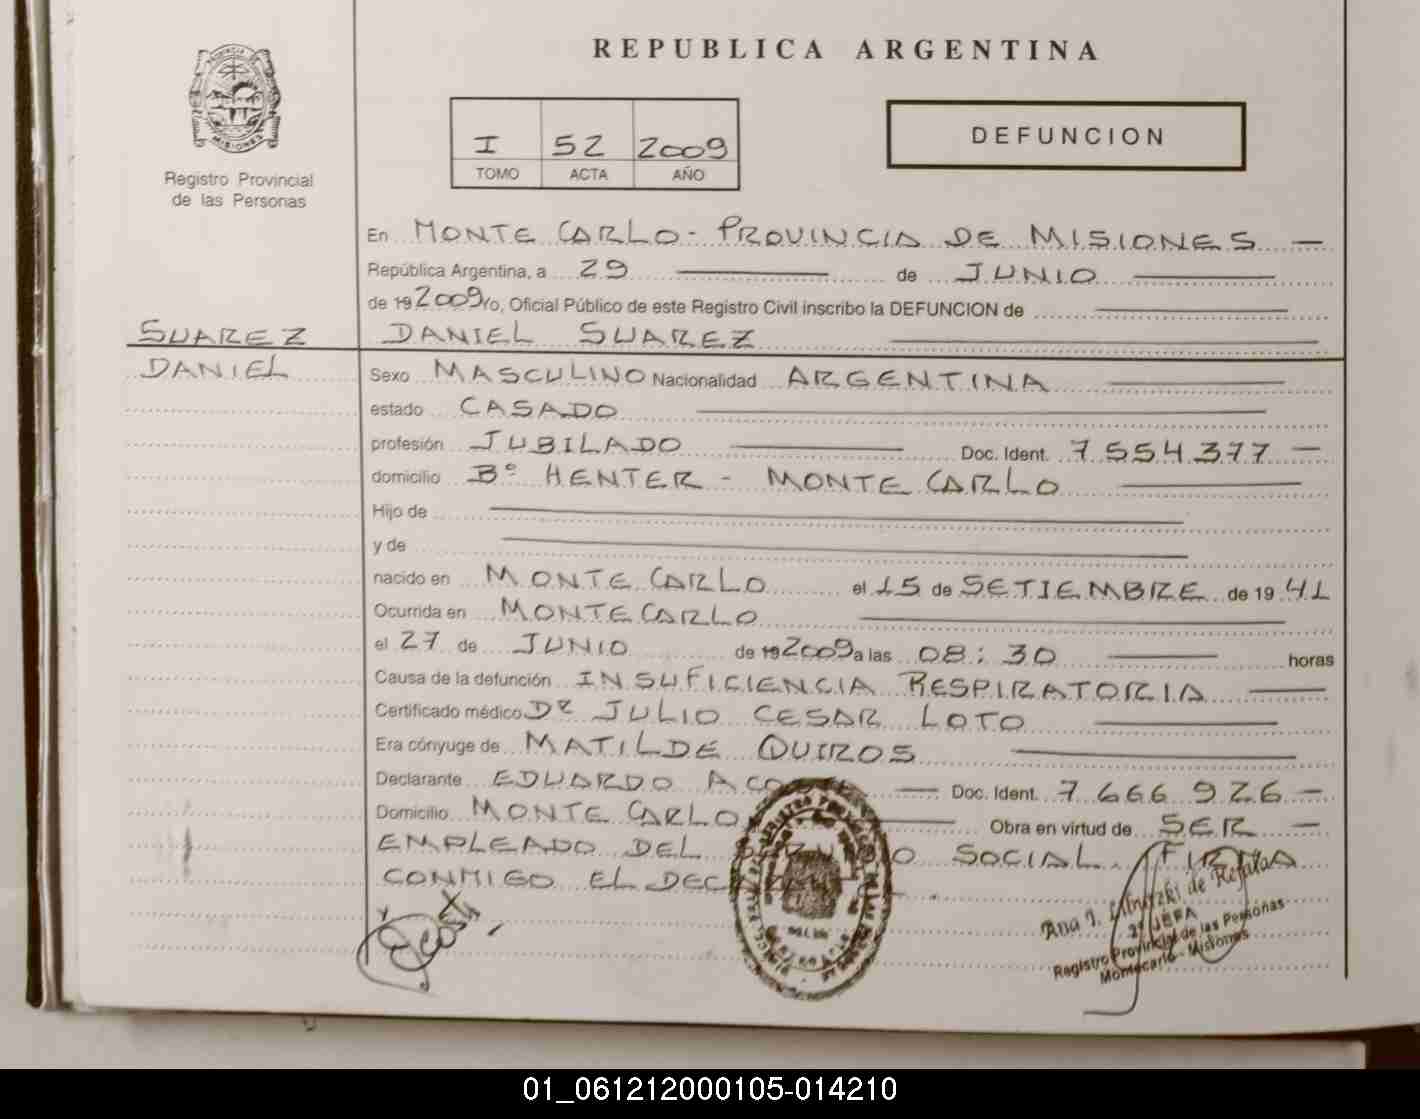 REPUBLICA ARGENTINA
PROVINCIA
MISIONES
Registro Provincial
de las Personas
I 52 2009
TOMO ACTA AÑO
DEFUNCION
En MONTE CARLO - PROVINCIA DE MISIONES
República Argentina, a 29 de JUNIO
de 19 2009 yo, Oficial Público de este Registro Civil inscribo la DEFUNCION de
SUAREZ DANIEL SUAREZ
DANIEL
Sexo MASCULINO Nacionalidad ARGENTINA
estado CASADO
profesión JUBILADO Doc. Ident. 7.554.377
domicilio Bº HENTER - MONTE CARLO
Hijo de
y de
nacido en MONTE CARLO el 15 de SETIEMBRE de 1941
Ocurrida en MONTE CARLO
el 27 de JUNIO de 19 2009 a las 08:30 horas
Causa de la defunción INSUFICIENCIA RESPIRATORIA
Certificado médico Dr JULIO CESAR LOTO
Era cónyuge de MATILDE QUIROS
Declarante EDUARDO Doc. Ident. 7.666.926
Domicilio MONTE CARLO Obra en virtud de SER
EMPLEADO DEL SOCIAL. FIRMA
CONMIGO EL
Ana
JEFA
Registro Provincial de las Personas
Montecarlo - Misiones
01_061212000105-014210